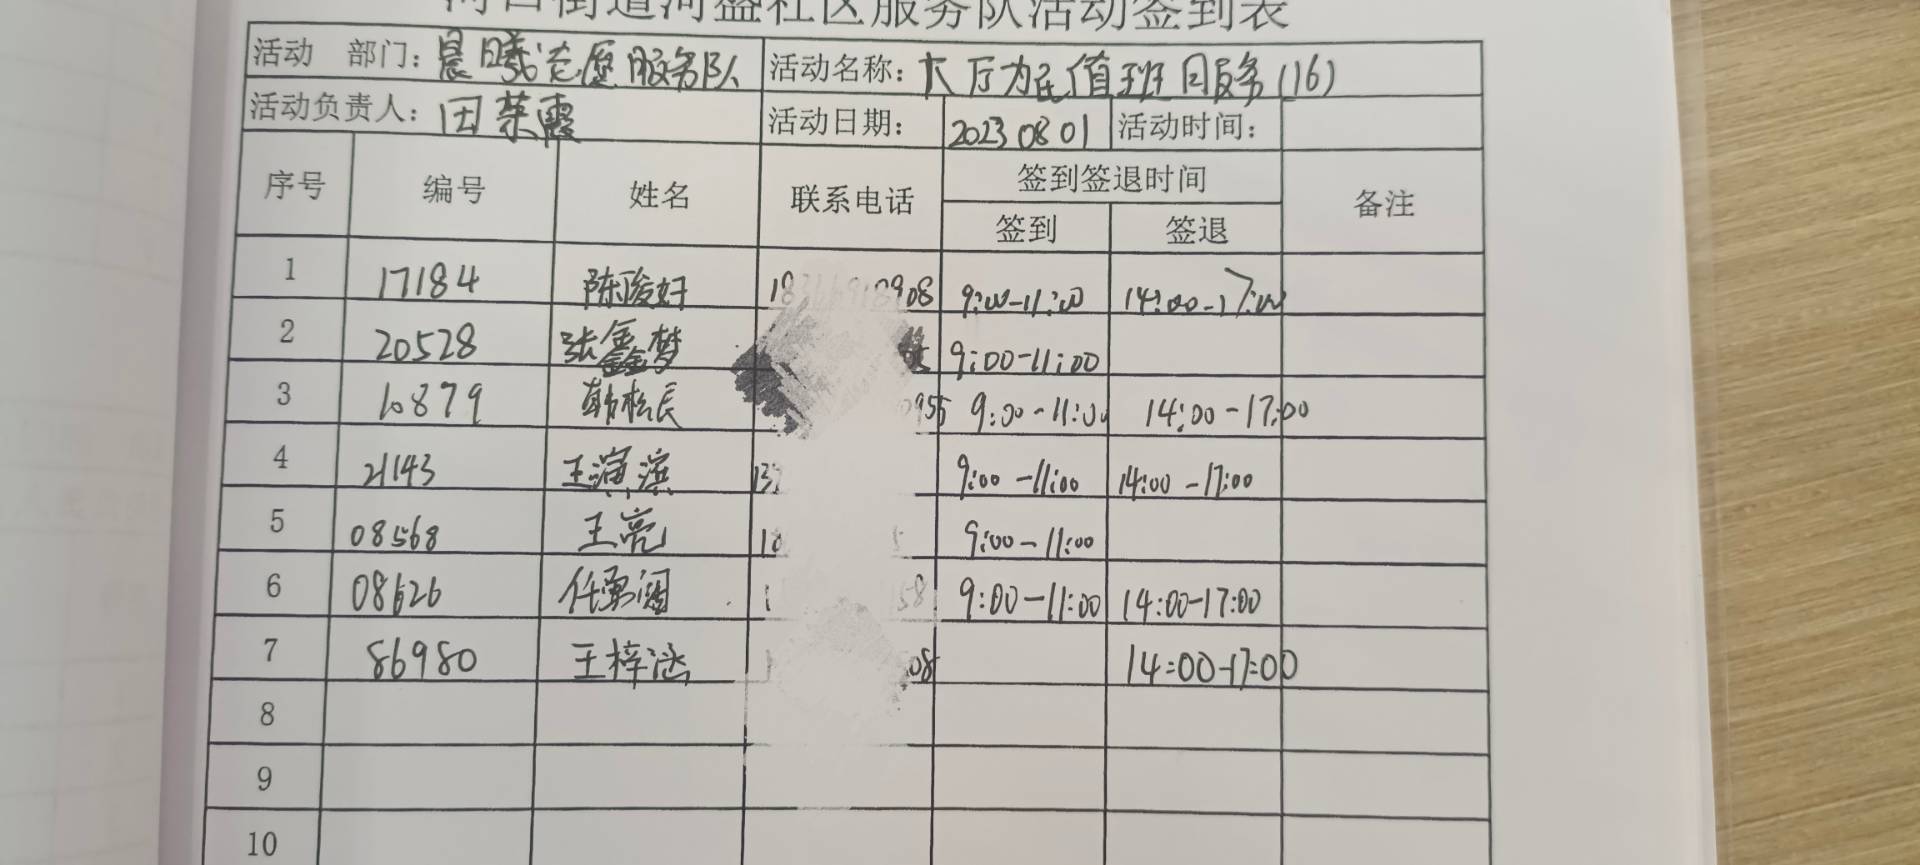 河口街道河盛社区服务队活动签到表
活动 部门: 晨曦志愿服务队 活动名称: 大厅为民值班服务(16)
活动负责人: 田荣霞 活动日期: 2023 08 01 活动时间:
序号 编号 姓名 联系电话 签到签退时间 备注
签到 签退
1 17184 陈俊好 9:00-11:00 14:00-17:00
2 20528 张鑫梦 9:00-11:00
3 10879 韩松辰 0955 9:00-11:00 14:00-17:00
4 21143 王演滨 9:00-11:00 14:00-17:00
5 08568 王亮 9:00-11:00
6 08626 任勇 9:00-11:00 14:00-17:00
7 86980 王梓涵 08 14:00-17:00
8
9
10